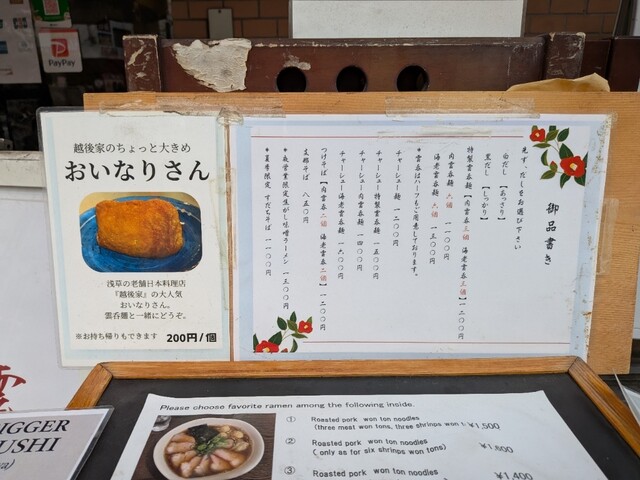 PayPay
越後家のちょっと大きめ
おいなりさん
浅草の老舗日本料理店
『越後家』の大人気
おいなりさん。
雲呑麺と一緒にどうぞ。
※お持ち帰りもできます 200円/個
御品書き
先ず、だしをお選び下さい
白だし【あっさり】
黒だし【しっかり】
特製雲呑麺【肉雲呑三個 海老雲呑三個】一二〇〇円
肉雲呑麺 六個 一一〇〇円
海老雲呑麺 六個 一三〇〇円
*雲呑はハーフもご用意しております。
チャーシュー麺 一二〇〇円
チャーシュー特製雲呑麺 一五〇〇円
チャーシュー肉雲呑麺 一四〇〇円
チャーシュー海老雲呑麺 一六〇〇円
つけそば【肉雲呑二個 海老雲呑二個】一二〇〇円
支那そば 八五〇円
*夜営業限定生がし味噌ラーメン 一三〇〇円
*夏季限定 すだちそば 一一〇〇円
Please choose favorite ramen among the following inside.
① Roasted pork won ton noodles
(three meat won tons, three shrimps won t ¥1,500
② Roasted pork won ton noodles
( only as for six shrimps won tons) ¥1,600
③ Roasted pork won ton noodles ¥1,400
IGGER
USHI